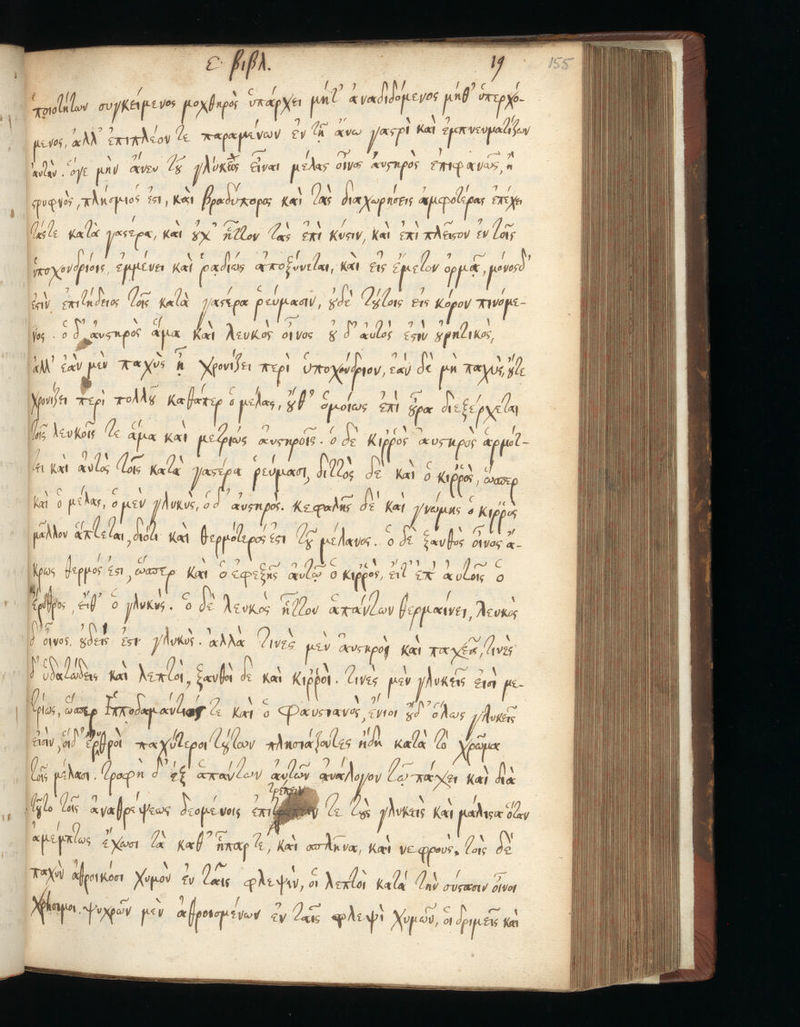 Ε βιβλ. 19 155
ποιοτήτων συγκείμενος μοχθηρὸς ὑπάρχει μήτ' ἀναδιδόμενος μήθ' ὑπερχό-
μενος, ἀλλ' ἐπιπλέον τε παραμένων ἐν τῇ ἄνω γαστρὶ καὶ ἐμπνευματίζων
αὐτὴν. ὅγε μὴν ἄνευ τοῦ γλυκὺς εἶναι μέλας οἶνος αὐστηρὸς ἐπιφανῶς, ἢ
στρυφνὸς, πλήσμιός ἐστι, καὶ βραδύπορος καὶ τὰς διαχωρήσεις ἀμφοτέρας ἐπέχει
τάς τε κατὰ γαστέρα, καὶ οὐχ' ἧττον τὰς ἐπὶ κύστιν, καὶ ἐπὶ πλεῖστον ἐν τοῖς
ὑποχονδρίοις, ἐμμένει καὶ ῥαδίως ἀποξύνεται, καὶ εἰς ἔμετον ὁρμᾷ, μόνος δ'
ἐστὶν ἐπιτήδειος τοῖς κατὰ γαστέρα ῥεύμασιν, οὐδὲ τούτοις εἰς κόρον πινόμε-
νος. ὁ δ' αὐστηρὸς ἅμα καὶ λευκὸς οἶνος οὐ δ' αὐτὸς ἐστὶν οὐρητικὸς,
ἀλλ' ἐὰν μὲν παχὺς ᾖ χρονίζει περὶ ὑποχόνδριον, ἐὰν δὲ μὴ παχὺς, οὔτε
χρονίζει περὶ πολλοῦ καθάπερ ὁ μέλας, οὔθ' ὁμοίως ἐπὶ οὖρα διεξέρχεται
τοῖς λευκοῖς τε ἅμα καὶ μετρίως αὐστηροῖς. ὁ δὲ κιρρὸς αὐστηρὸς ἁρμότ-
τει καὶ αὐτὸς τοῖς κατὰ γαστέρα ῥεύμασι, διττὸς δὲ καὶ ὁ κιρρὸς, ὥσπερ
καὶ ὁ μέλας, ὁ μὲν γλυκὺς, ὁ δ' αὐστηρὸς. κεφαλῆς δὲ καὶ γνώμης ὁ κιρρὸς
μᾶλλον ἅπτεται, διότι καὶ θερμότερός ἐστι τοῦ μέλανος. ὁ δὲ ξανθὸς οἶνος ἄ-
κρως θερμός ἐστι, ὥσπερ καὶ ὁ ἐφεξῆς αὐτῷ ὁ κιρρὸς, εἶτ' ἐπ' αὐτοῖς ὁ
ἐρυθρὸς, εἶθ' ὁ γλυκὺς. ὁ δὲ λευκὸς ἧττον ἁπάντων θερμαίνει, λευκὸς
δ' οἶνος οὐδεὶς ἐστι γλυκὺς. ἀλλὰ τινὲς μὲν αὐστηροὶ καὶ παχεῖς, τινὲς
δ' ὑδατώδεις καὶ λεπτοὶ, ξανθοὶ δὲ καὶ κιρροὶ. τινὲς μὲν γλυκεῖς εἰσὶ με-
τρίως, ὥσπερ Ἱπποδαμάντιός τε καὶ ὁ Φαυστιανὸς, ἔνιοι οὐδ' ὅλως γλυκεῖς
εἰσὶν, οἱ δ' ἐρυθροὶ παχύτεροι τούτων πλησιάζοντες ἤδη κατὰ τὸ χρῶμα
τοῖς μέλασι. τροφὴ δ' ἐξ ἁπάντων αὐτῶν ἀνάλογον τῷ πάχει καὶ διὰ
τρέπειν
τοῦτο τοῖς ἀναθρέψεως δεομένοις τε τοὺς γλυκεῖς καὶ μάλιστα ὅταν
ἀμέμπτως ἔχωσι τὰ καθ' ἧπαρ τε, καὶ σπλῆνα, καὶ νεφροὺς. τοῖς δὲ
παχὺν ἀθροικόσι χυμὸν ἐν ταῖς φλεψὶν, οἱ λεπτοὶ κατὰ τὴν σύστασιν οἶνοι
χρήσιμοι. ψυχρῶν μὲν ἀθροισμένων ἐν ταῖς φλεψὶ χυμῶν, οἱ δριμεῖς καὶ